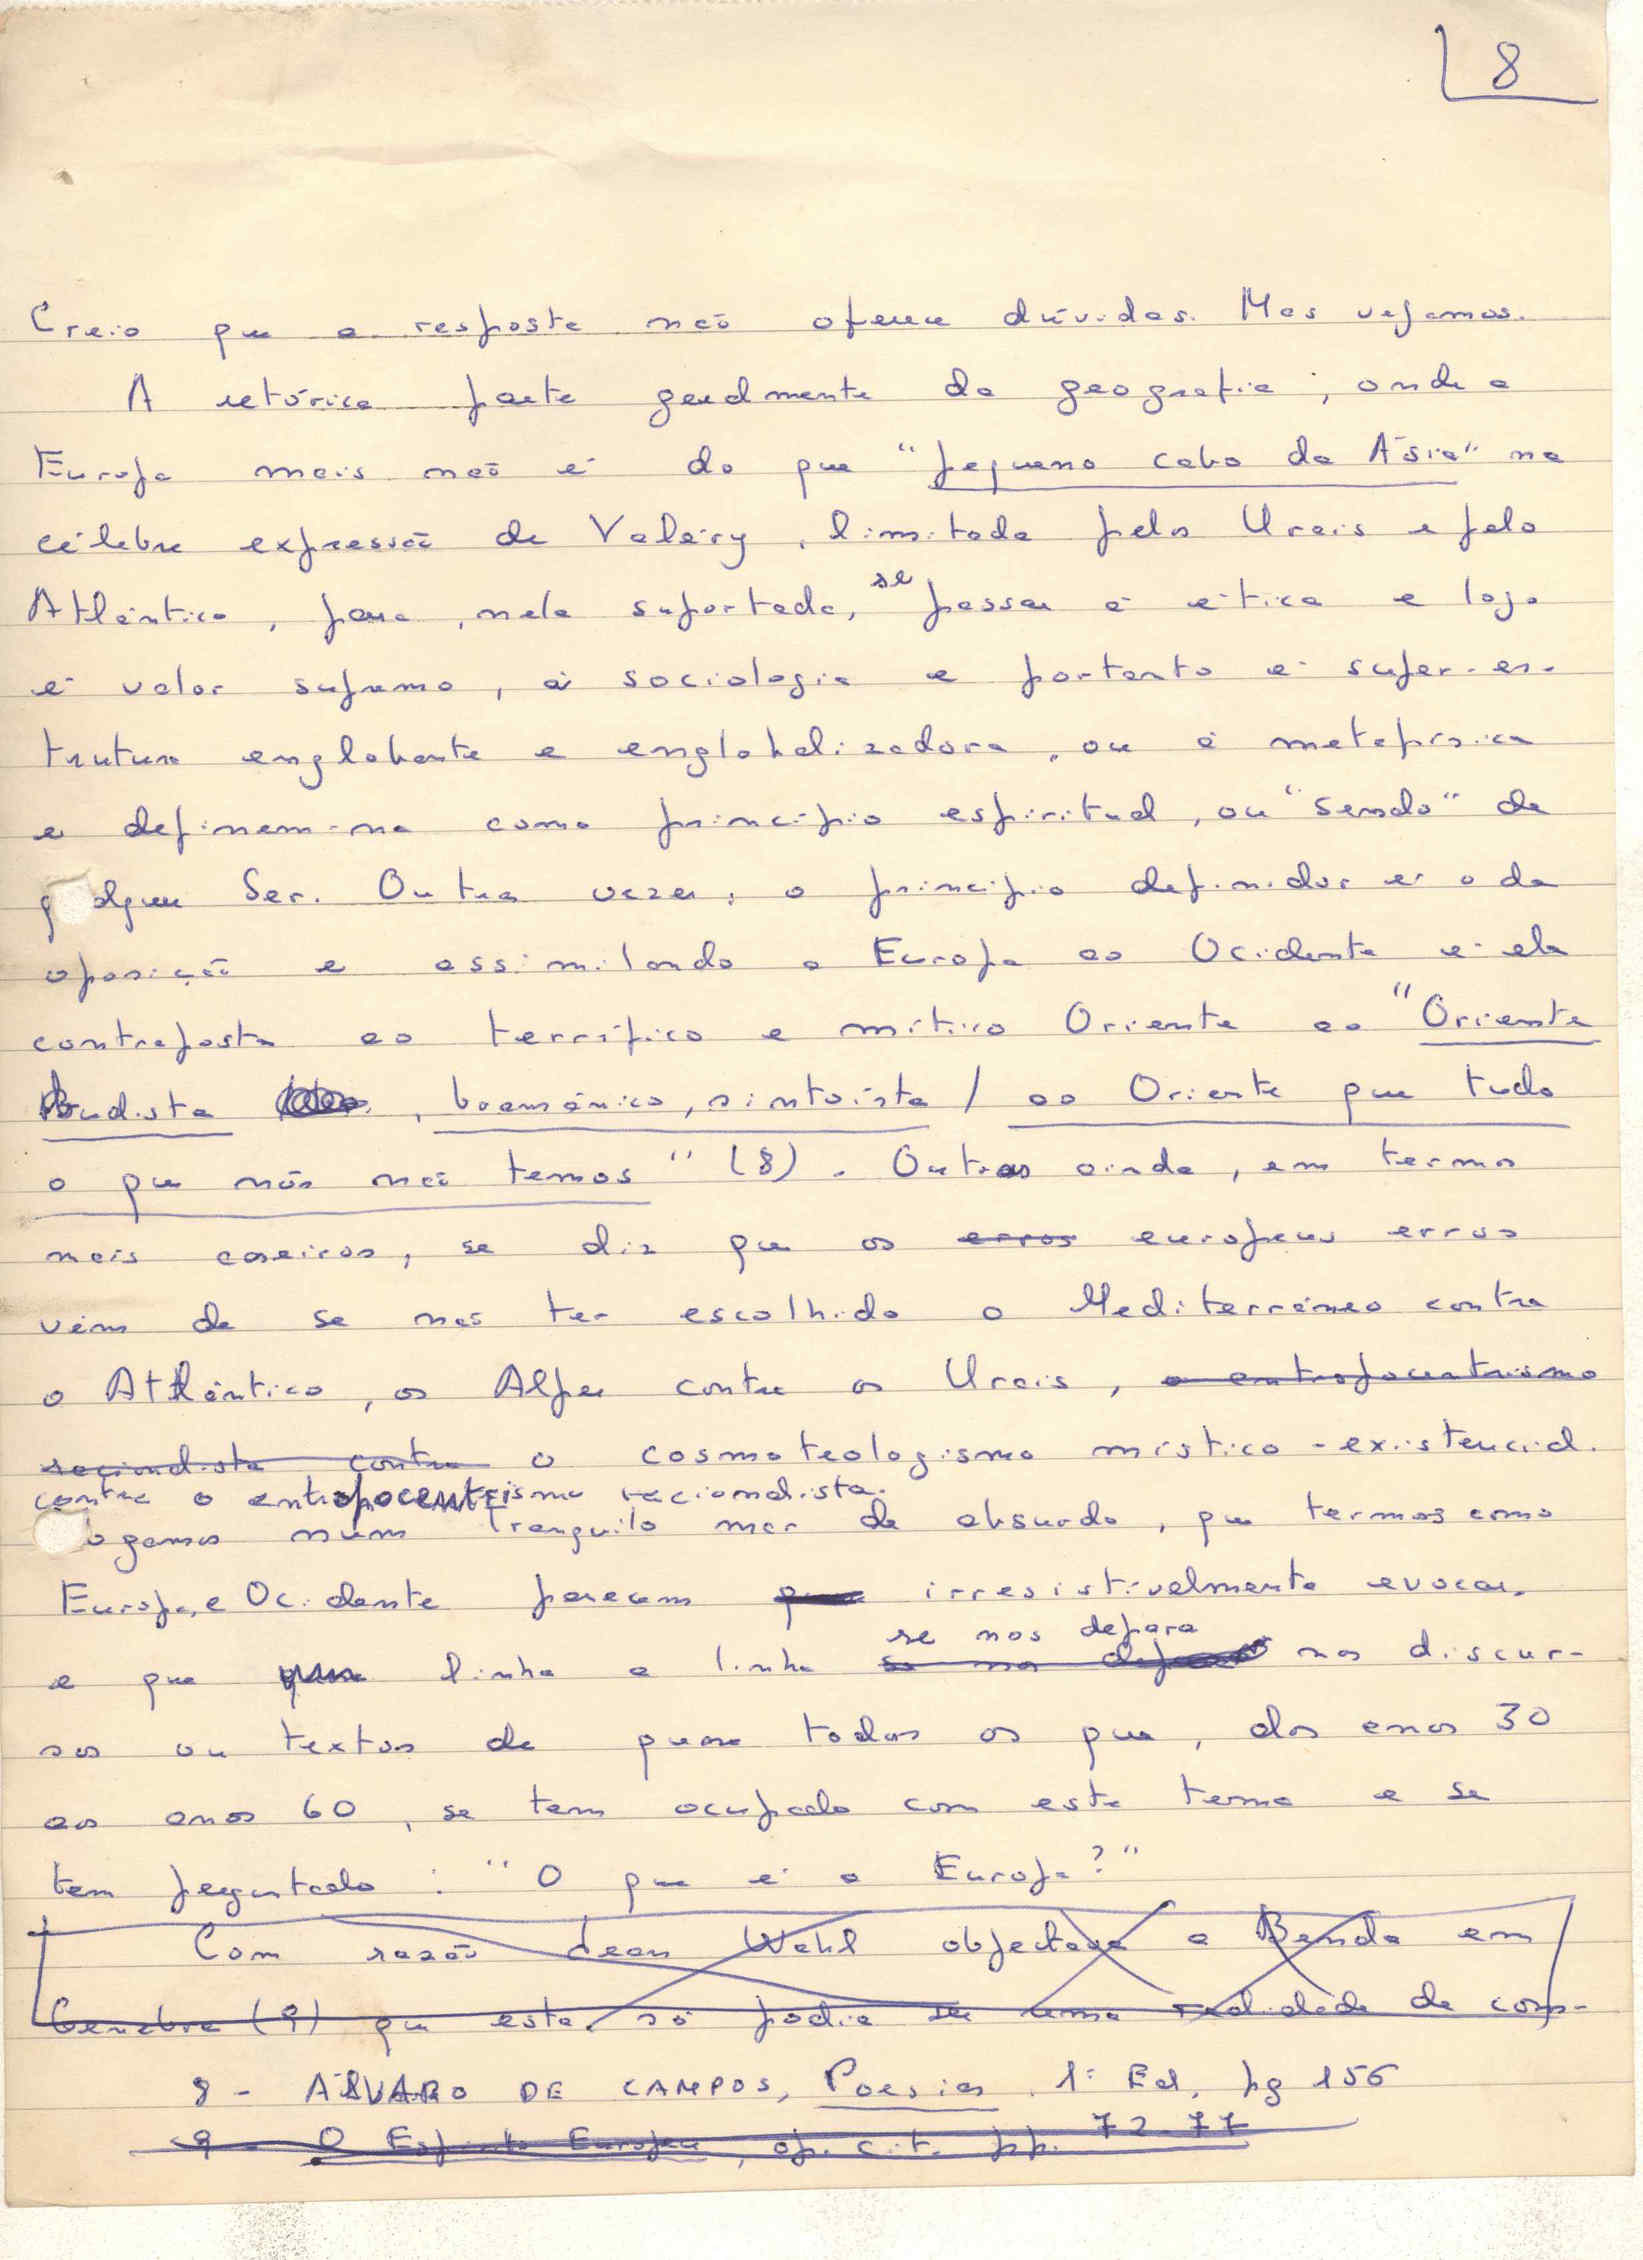 8
Creio que a resposta não oferece dúvidas. Mas vejamos.
A retórica parte geralmente da geografia, onde a
Europa mais não é do que "pequeno cabo da Ásia" na
célebre expressão de Valéry, limitada pelos Urais e pelo
Atlântico, para, nela suportada, se passar à ética e logo
é valor supremo, à sociologia e portanto é super-es-
trutura englobante e englobalizadora, ou à metafísica
e definem-na como princípio espiritual, ou "sendo" de
qualquer Ser. Outras vezes, o princípio definidor é o da
oposição e assimilando a Europa ao Ocidente é ela
contraposta ao terrífico e mítico Oriente ao "Oriente
Budista, bramânico, sintoísta / ao Oriente que tudo
o que nós não temos" (8). Outros ainda, em termos
mais caseiros, se diz que os erros europeus erros
vêm de se não ter escolhido o Mediterrâneo contra
o Atlântico, os Alpes contra os Urais, o antropocentrismo
racionalista contra o cosmoteologismo místico-existencial.
contra o antropocentrismo racionalista.
ogamos num tranquilo mar de absurdo, que termos como
Europa e Ocidente parecem irresistivelmente evocar,
e que linha a linha se nos depara nos discur-
sos ou textos de quase todos os que, dos anos 30
aos anos 60, se tem ocupado com este tema e se
tem perguntado: "O que é a Europa?"
Com razão Jean Wahl objectava a Benda em
Genebra (9) que esta só podia ser uma realidade de comp-
8 - ÁLVARO DE CAMPOS, Poesias, 1ª Ed, pg 156
9 - O Espírito Europeu, op. cit. pp. 72-77